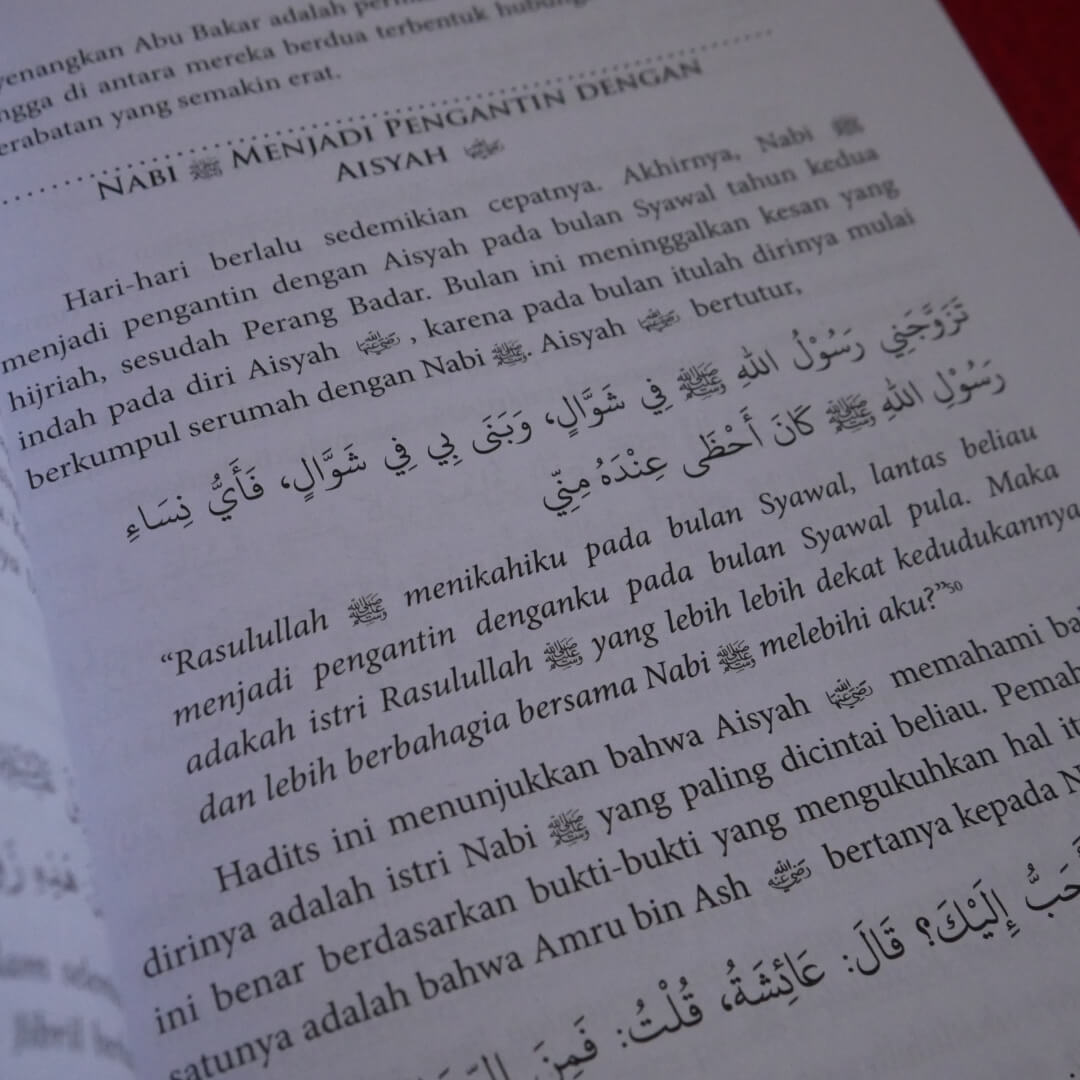 Abu Bakar adalah
di antara mereka berdua terbentuk
yang semakin erat.
NABI ﷺ MENJADI PENGANTIN DENGAN
AISYAH
Hari-hari berlalu sedemikian cepatnya. Akhirnya, Nabi ﷺ
menjadi pengantin dengan Aisyah pada bulan Syawal tahun kedua
hijriah, sesudah Perang Badar. Bulan ini meninggalkan kesan yang
indah pada diri Aisyah , karena pada bulan itulah dirinya mulai
berkumpul serumah dengan Nabi ﷺ. Aisyah bertutur,
تَزَوَّجَنِي رَسُوْلُ اللهِ ﷺ فِي شَوَّالٍ، وَبَنَى بِي فِي شَوَّالٍ، فَأَيُّ نِسَاءِ
رَسُوْلِ اللهِ ﷺ كَانَ أَحْظَى عِنْدَهُ مِنِّي
“Rasulullah ﷺ menikahiku pada bulan Syawal, lantas beliau
menjadi pengantin denganku pada bulan Syawal pula. Maka
adakah istri Rasulullah ﷺ yang lebih lebih dekat kedudukannya
dan lebih berbahagia bersama Nabi ﷺ melebihi aku?”50
Hadits ini menunjukkan bahwa Aisyah memahami
dirinya adalah istri Nabi ﷺ yang paling dicintai beliau.
ini benar berdasarkan bukti-bukti yang mengukuhkan hal
satunya adalah bahwa Amru bin Ash bertanya kepada
إِلَيْكَ؟ قَالَ: عَائِشَةُ، قُلْتُ: فَمِنَ